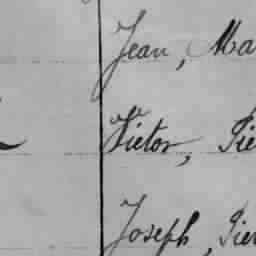 Jean, Ma
Victor, Pie
Joseph, Pier